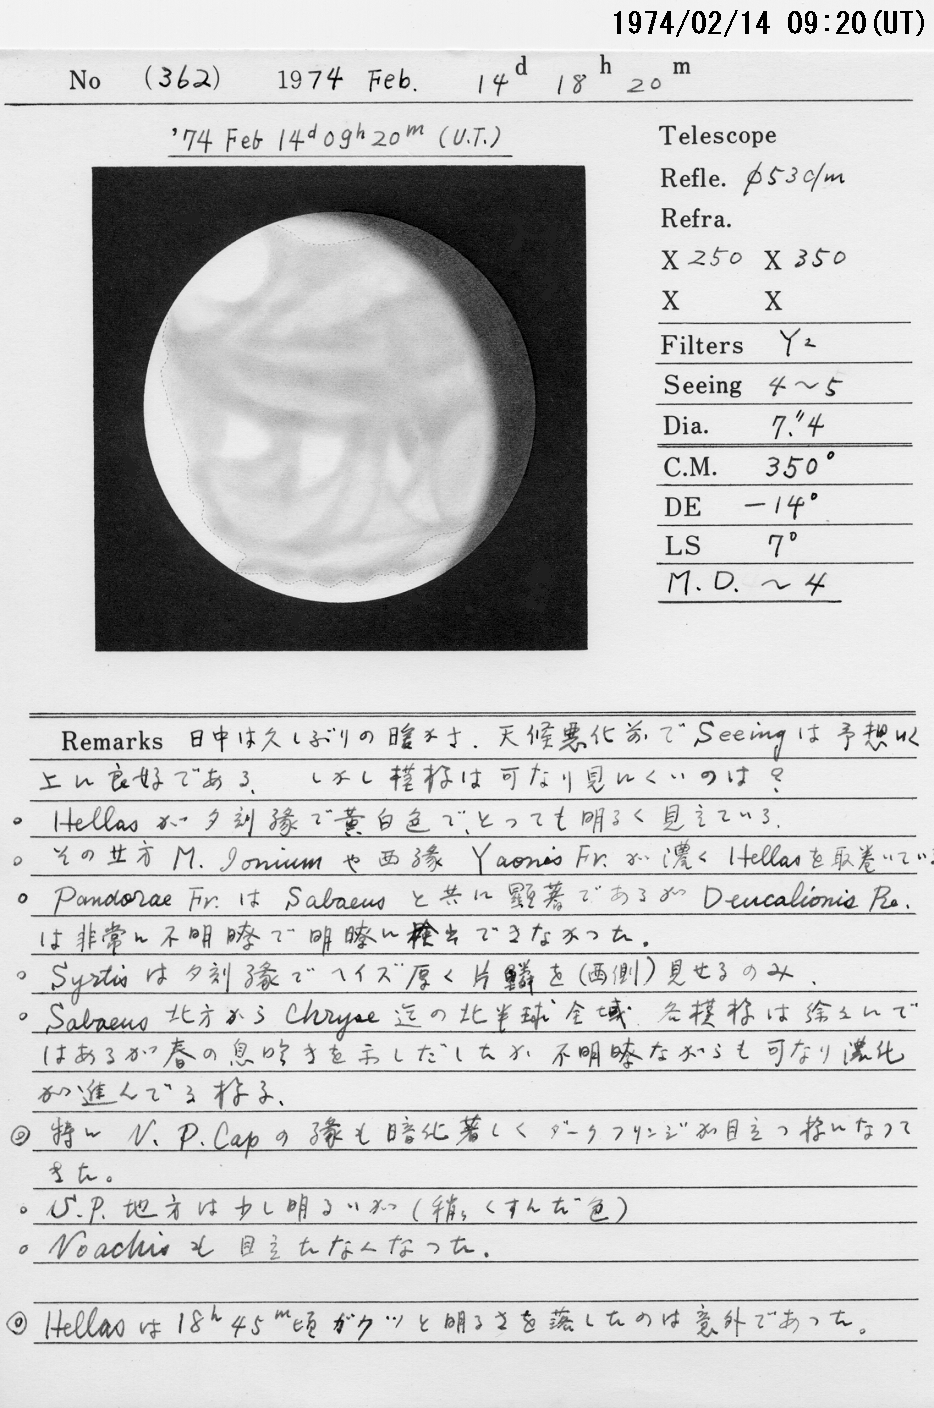 1974/02/14 09:20(UT)
No (362) 1974 Feb. 14d 18h 20m
'74 Feb 14d 09h 20m (U.T.)
Telescope
Refle. φ53c/m
Refra.
X 250 X 350
X X
Filters Y2
Seeing 4～5
Dia. 7."4
C.M. 350°
DE -14°
LS 7°
M.D. ～4
Remarks 日中は久しぶりの暖かさ、天候悪化前でSeeingは予想以
上に良好である。しかし模様は可なり見にくいのは?
○ Hellasが夕刻縁で黄白色で、とっても明るく見えている。
○ その北方 M. Ionium や西縁 Yaonis Fr. が濃くHellasを取巻いている
○ Pandorae Fr. は Sabaeus と共に顕著であるが Deucalionis Re.
は非常に不明瞭で明瞭に検出できなかった。
○ Syrtisは夕刻縁でヘイズ厚く片鱗を(西側)見せるのみ、
○ Sabaeus 北方から Chryse 迄の北半球全域 各模様は徐々にで
はあるが春の息吹きを示しだしたか 不明瞭ながらも可なり濃化
が進んでる様子。
◎ 特に N.P.Capの縁も暗化著しくダークフリンジが目立つ様になって
きた。
○ S.P. 地方は少し明るいが(稍々くすんだ色)
○ Noachisも目立たなくなった。
◎ Hellasは18h45m頃ガクッと明るさを落したのは意外であった。